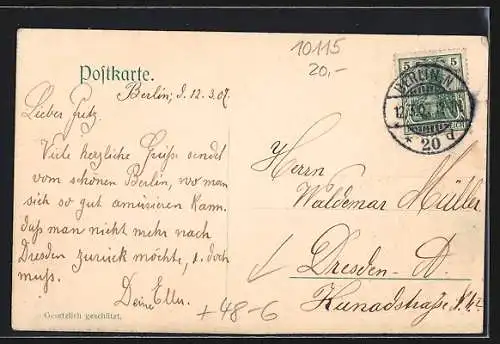 10115
20,-
Postkarte.
Berlin, d. 12.3.07.
5 5
BERLIN. N.
20 d
Lieber Fritz.
Viele herzliche Grüße sendet
vom schönen Berlin, wo man
sich so gut amüsieren kann.
daß man nicht mehr nach
Dresden zurück möchte, u. doch
muss.
Deine Ellen.
Herrn
Waldemar Müller.
Dresden- A.
Kunadstraße
+ 48-6
Gesetzlich geschützt.